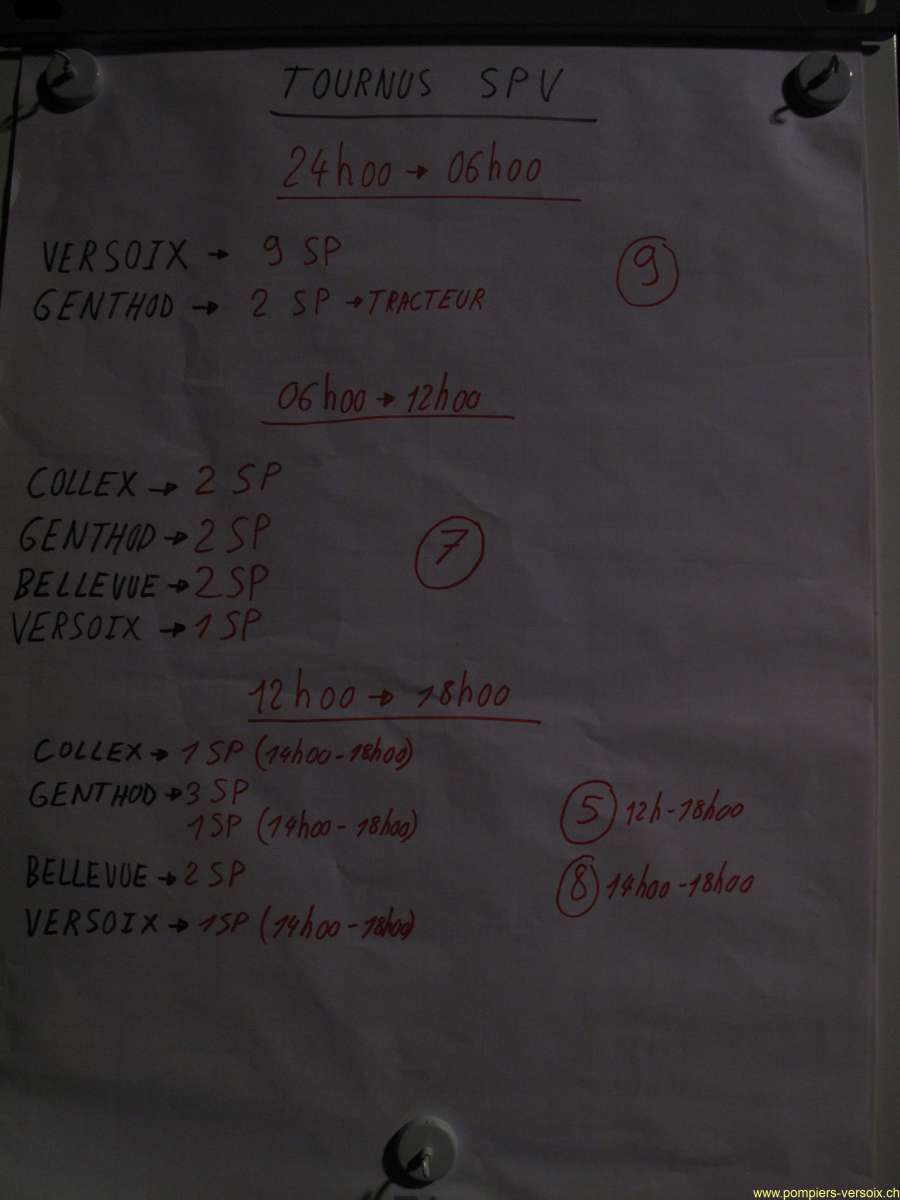 TOURNUS SPV
24h00 → 06h00
VERSOIX → 9 SP
9
GENTHOD → 2 SP → TRACTEUR
06h00 → 12h00
COLLEX → 2 SP
GENTHOD → 2 SP
7
BELLEVUE → 2 SP
VERSOIX → 1 SP
12h00 → 18h00
COLLEX → 1 SP (14h00 - 18h00)
GENTHOD → 3 SP
1 SP (14h00 - 18h00)
5 12h - 18h00
BELLEVUE → 2 SP
8 14h00 - 18h00
VERSOIX → 1 SP (14h00 - 18h00)
www.pompiers-versoix.ch